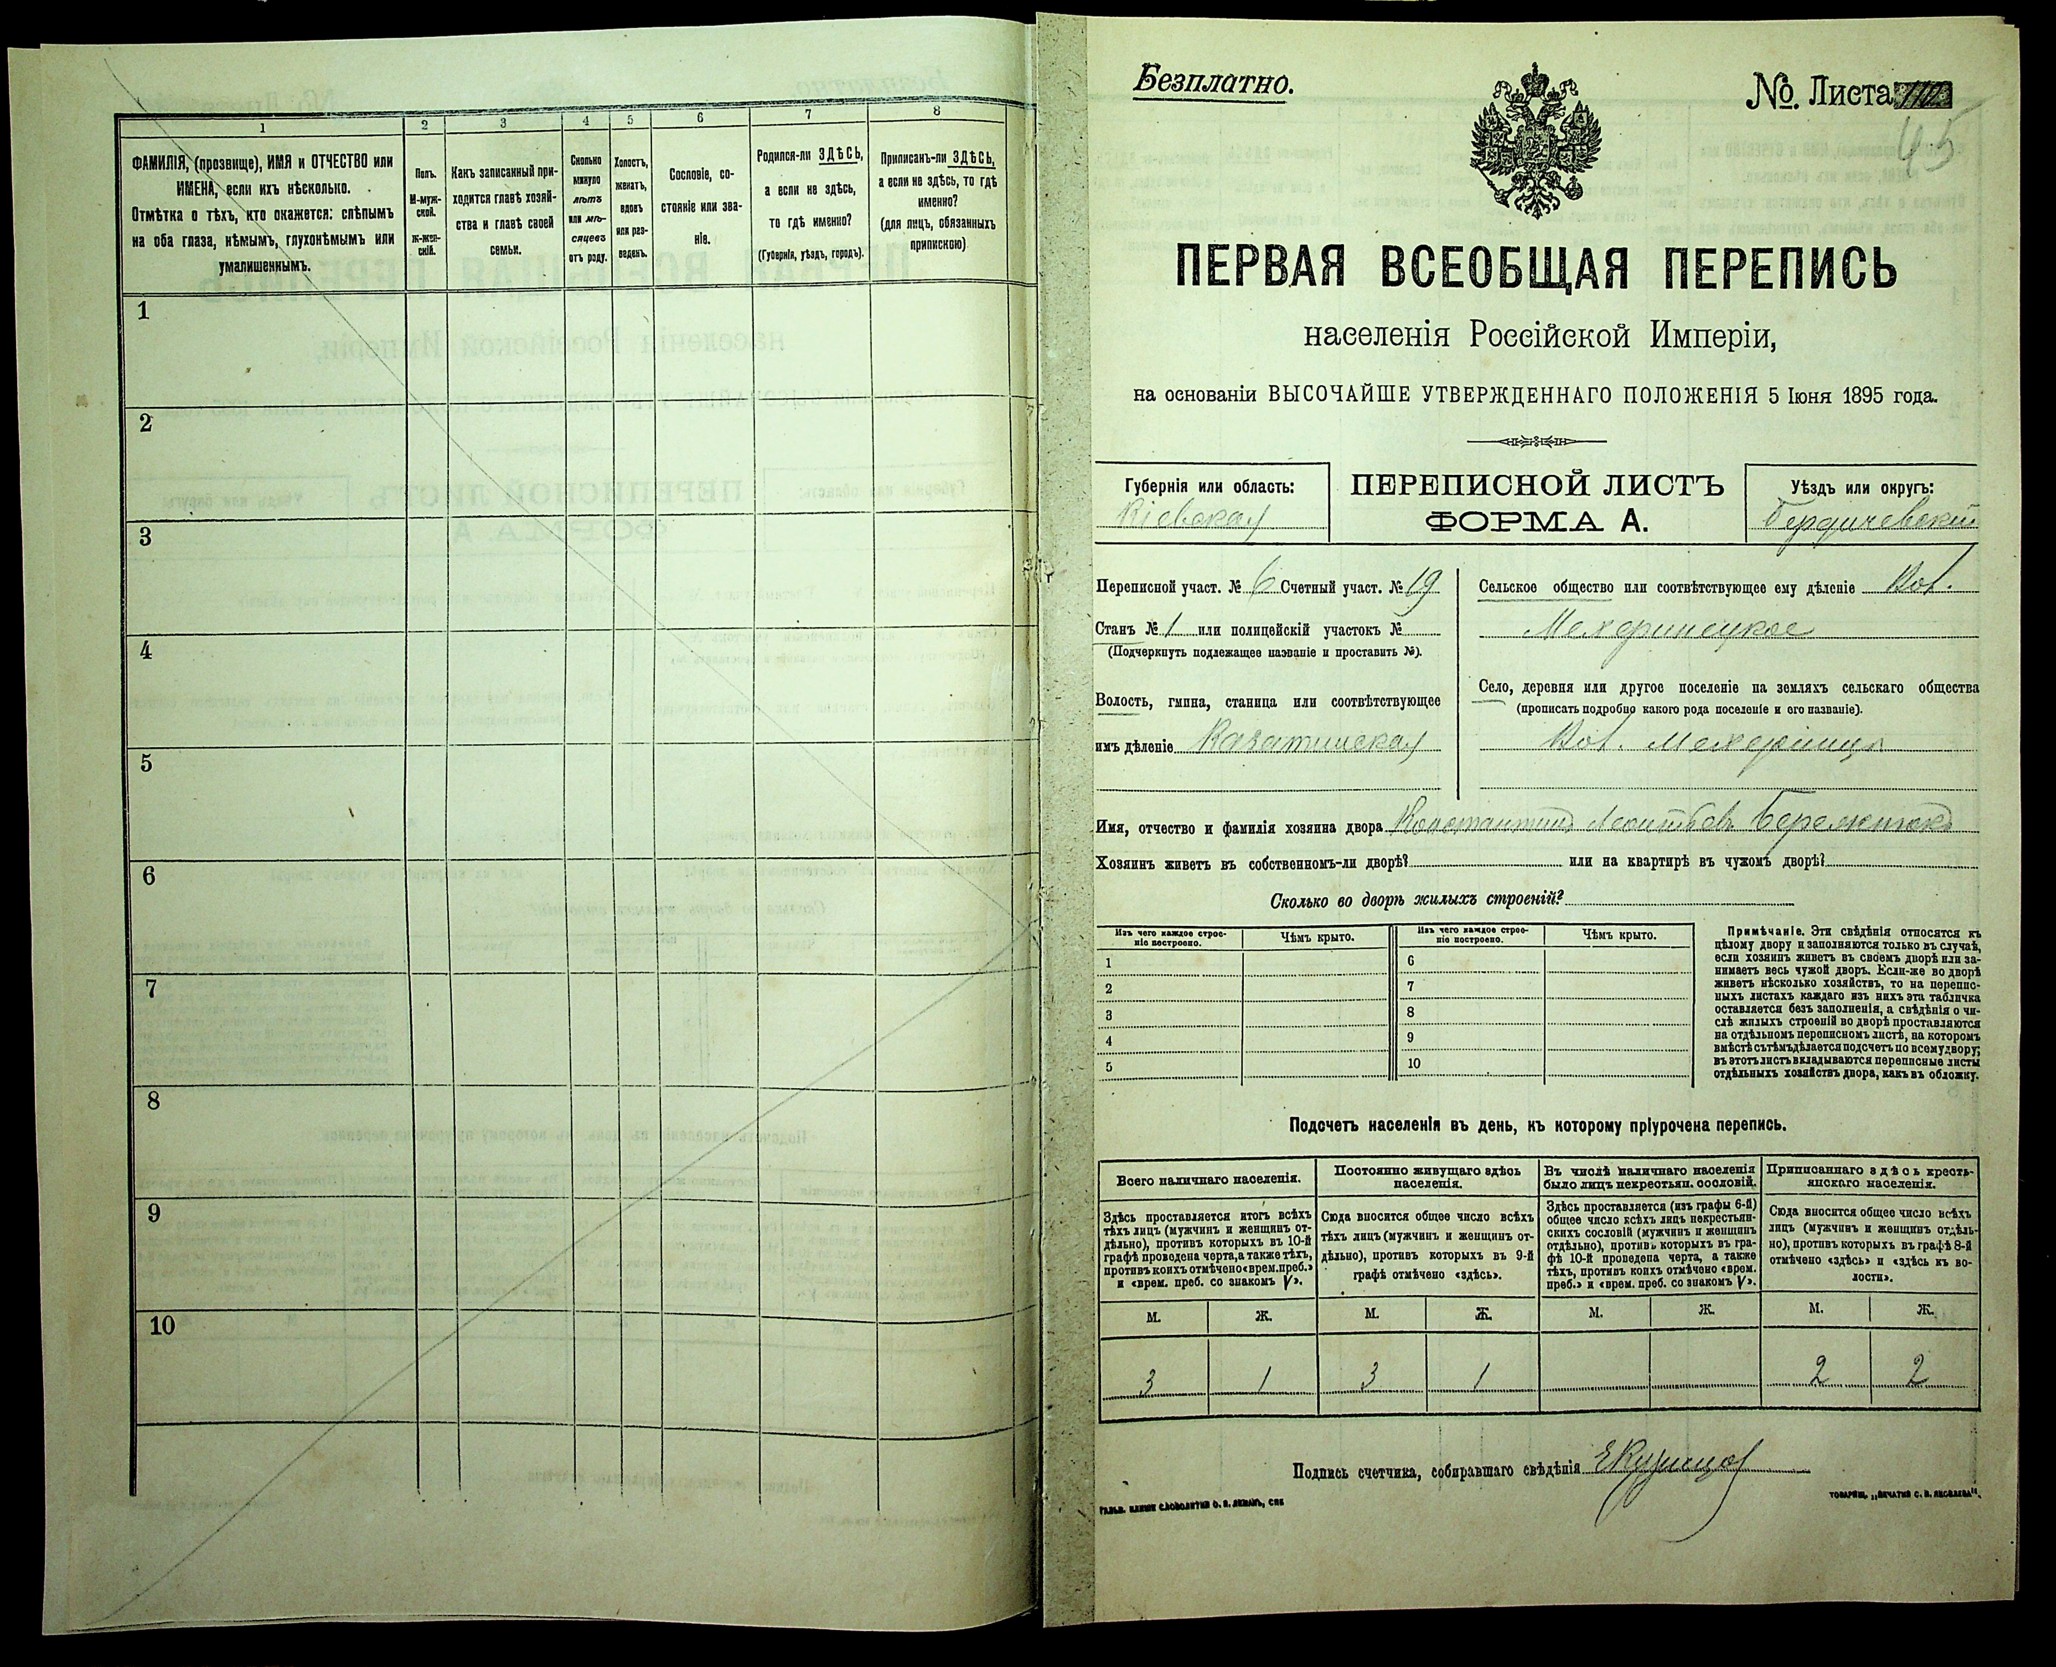 1
2
3
4
5
6
7
8
ФАМИЛІЯ, (прозвище), ИМЯ и ОТЧЕСТВО или
ИМЕНА, если ихъ нѣсколько.
Отмѣтка о тѣхъ, кто окажется: слѣпымъ
на оба глаза, нѣмымъ, глухонѣмымъ или
умалишеннымъ.
Полъ.
М-муж-
ской.
ж-жен-
скій.
Какъ записанный при-
ходится главѣ хозяй-
ства и главѣ своей
семьи.
Сколько
минуло
лѣтъ
или мѣ-
сяцевъ
отъ роду.
Холостъ,
женатъ,
вдовъ
или раз-
веденъ.
Сословіе, со-
стояніе или зва-
ніе.
Родился-ли ЗДѢСЬ,
а если не здѣсь,
то гдѣ именно?
(Губернія, уѣздъ, городъ).
Приписанъ-ли ЗДѢСЬ,
а если не здѣсь, то гдѣ
именно?
(для лицъ, обязанныхъ
припискою)
1
2
3
4
5
6
7
8
9
10
Безплатно.
№ Листа 110
45
ПЕРВАЯ ВСЕОБЩАЯ ПЕРЕПИСЬ
населенія Россійской Имперіи,
на основаніи ВЫСОЧАЙШЕ УТВЕРЖДЕННАГО ПОЛОЖЕНІЯ 5 Іюня 1895 года.
Губернія или область:
Кіевская
ПЕРЕПИСНОЙ ЛИСТЪ
ФОРМА А.
Уѣздъ или округъ:
Бердичевскій
Переписной участ. № 6 Счетный участ. № 19
Станъ № 1 или полицейскій участокъ №
(Подчеркнуть подлежащее названіе и проставить №).
Волость, гмина, станица или соотвѣтствующее
имъ дѣленіе Казатинская
Сельское общество или соотвѣтствующее ему дѣленіе
Село, деревня или другое поселеніе на земляхъ сельскаго общества
(прописать подробно какого рода поселеніе и его названіе).
Имя, отчество и фамилія хозяина двора Константинъ Леонтьевъ
Хозяинъ живетъ въ собственномъ-ли дворѣ? или на квартирѣ въ чужомъ дворѣ?
Сколько во дворѣ жилыхъ строеній?
Изъ чего каждое строе-
ніе построено.
Чѣмъ крыто.
Изъ чего каждое строе-
ніе построено.
Чѣмъ крыто.
1
2
3
4
5
6
7
8
9
10
Примѣчаніе. Эти свѣдѣнія относятся къ
цѣлому двору и заполняются только въ случаѣ,
если хозяинъ живетъ въ своемъ дворѣ или за-
нимаетъ весь чужой дворъ. Если-же во дворѣ
живетъ нѣсколько хозяйствъ, то на перепис-
ныхъ листахъ каждаго изъ нихъ эта табличка
оставляется безъ заполненія, а свѣдѣнія о чи-
слѣ жилыхъ строеній во дворѣ проставляются
на отдѣльномъ переписномъ листѣ, на которомъ
вмѣстѣ съ тѣмъ дѣлается подсчетъ по всему двору;
въ этотъ листъ вкладываются переписные листы
отдѣльныхъ хозяйствъ двора, какъ въ обложку.
Подсчетъ населенія въ день, къ которому пріурочена перепись.
Всего наличнаго населенія.
Здѣсь проставляется итогъ всѣхъ
тѣхъ лицъ (мужчинъ и женщинъ от-
дѣльно), противъ которыхъ въ 10-й
графѣ проведена черта, а также тѣхъ,
противъ коихъ отмѣчено «врем. преб.»
и «врем. преб. со знакомъ V».
Постоянно живущаго здѣсь
населенія.
Сюда вносится общее число всѣхъ
тѣхъ лицъ (мужчинъ и женщинъ от-
дѣльно), противъ которыхъ въ 9-й
графѣ отмѣчено «здѣсь».
Въ числѣ наличнаго населенія
было лицъ некрестьян. сословій.
Здѣсь проставляется (изъ графы 6-й)
общее число всѣхъ лицъ некрестьян-
скихъ сословій (мужчинъ и женщинъ
отдѣльно), противъ которыхъ въ гра-
фѣ 10-й проведена черта, а также
тѣхъ, противъ коихъ отмѣчено «врем.
преб.» и «врем. преб. со знакомъ V».
Приписаннаго здѣсь кресть-
янскаго населенія.
Сюда вносится общее число всѣхъ
лицъ (мужчинъ и женщинъ отдѣль-
но), противъ которыхъ въ графѣ 8-й
отмѣчено «здѣсь» и «здѣсь къ во-
лости».
М. Ж. М. Ж. М. Ж. М. Ж.
3 1 3 1 2 2
Подпись счетчика, собиравшаго свѣдѣнія
ГАЛЬВ. КЛИШЕ СЛОВОЛИТНИ О. И. ЛЕМАНЪ, СПБ
ТОВАРИЩ. „ПЕЧАТНЯ С. П. ЯКОВЛЕВА".